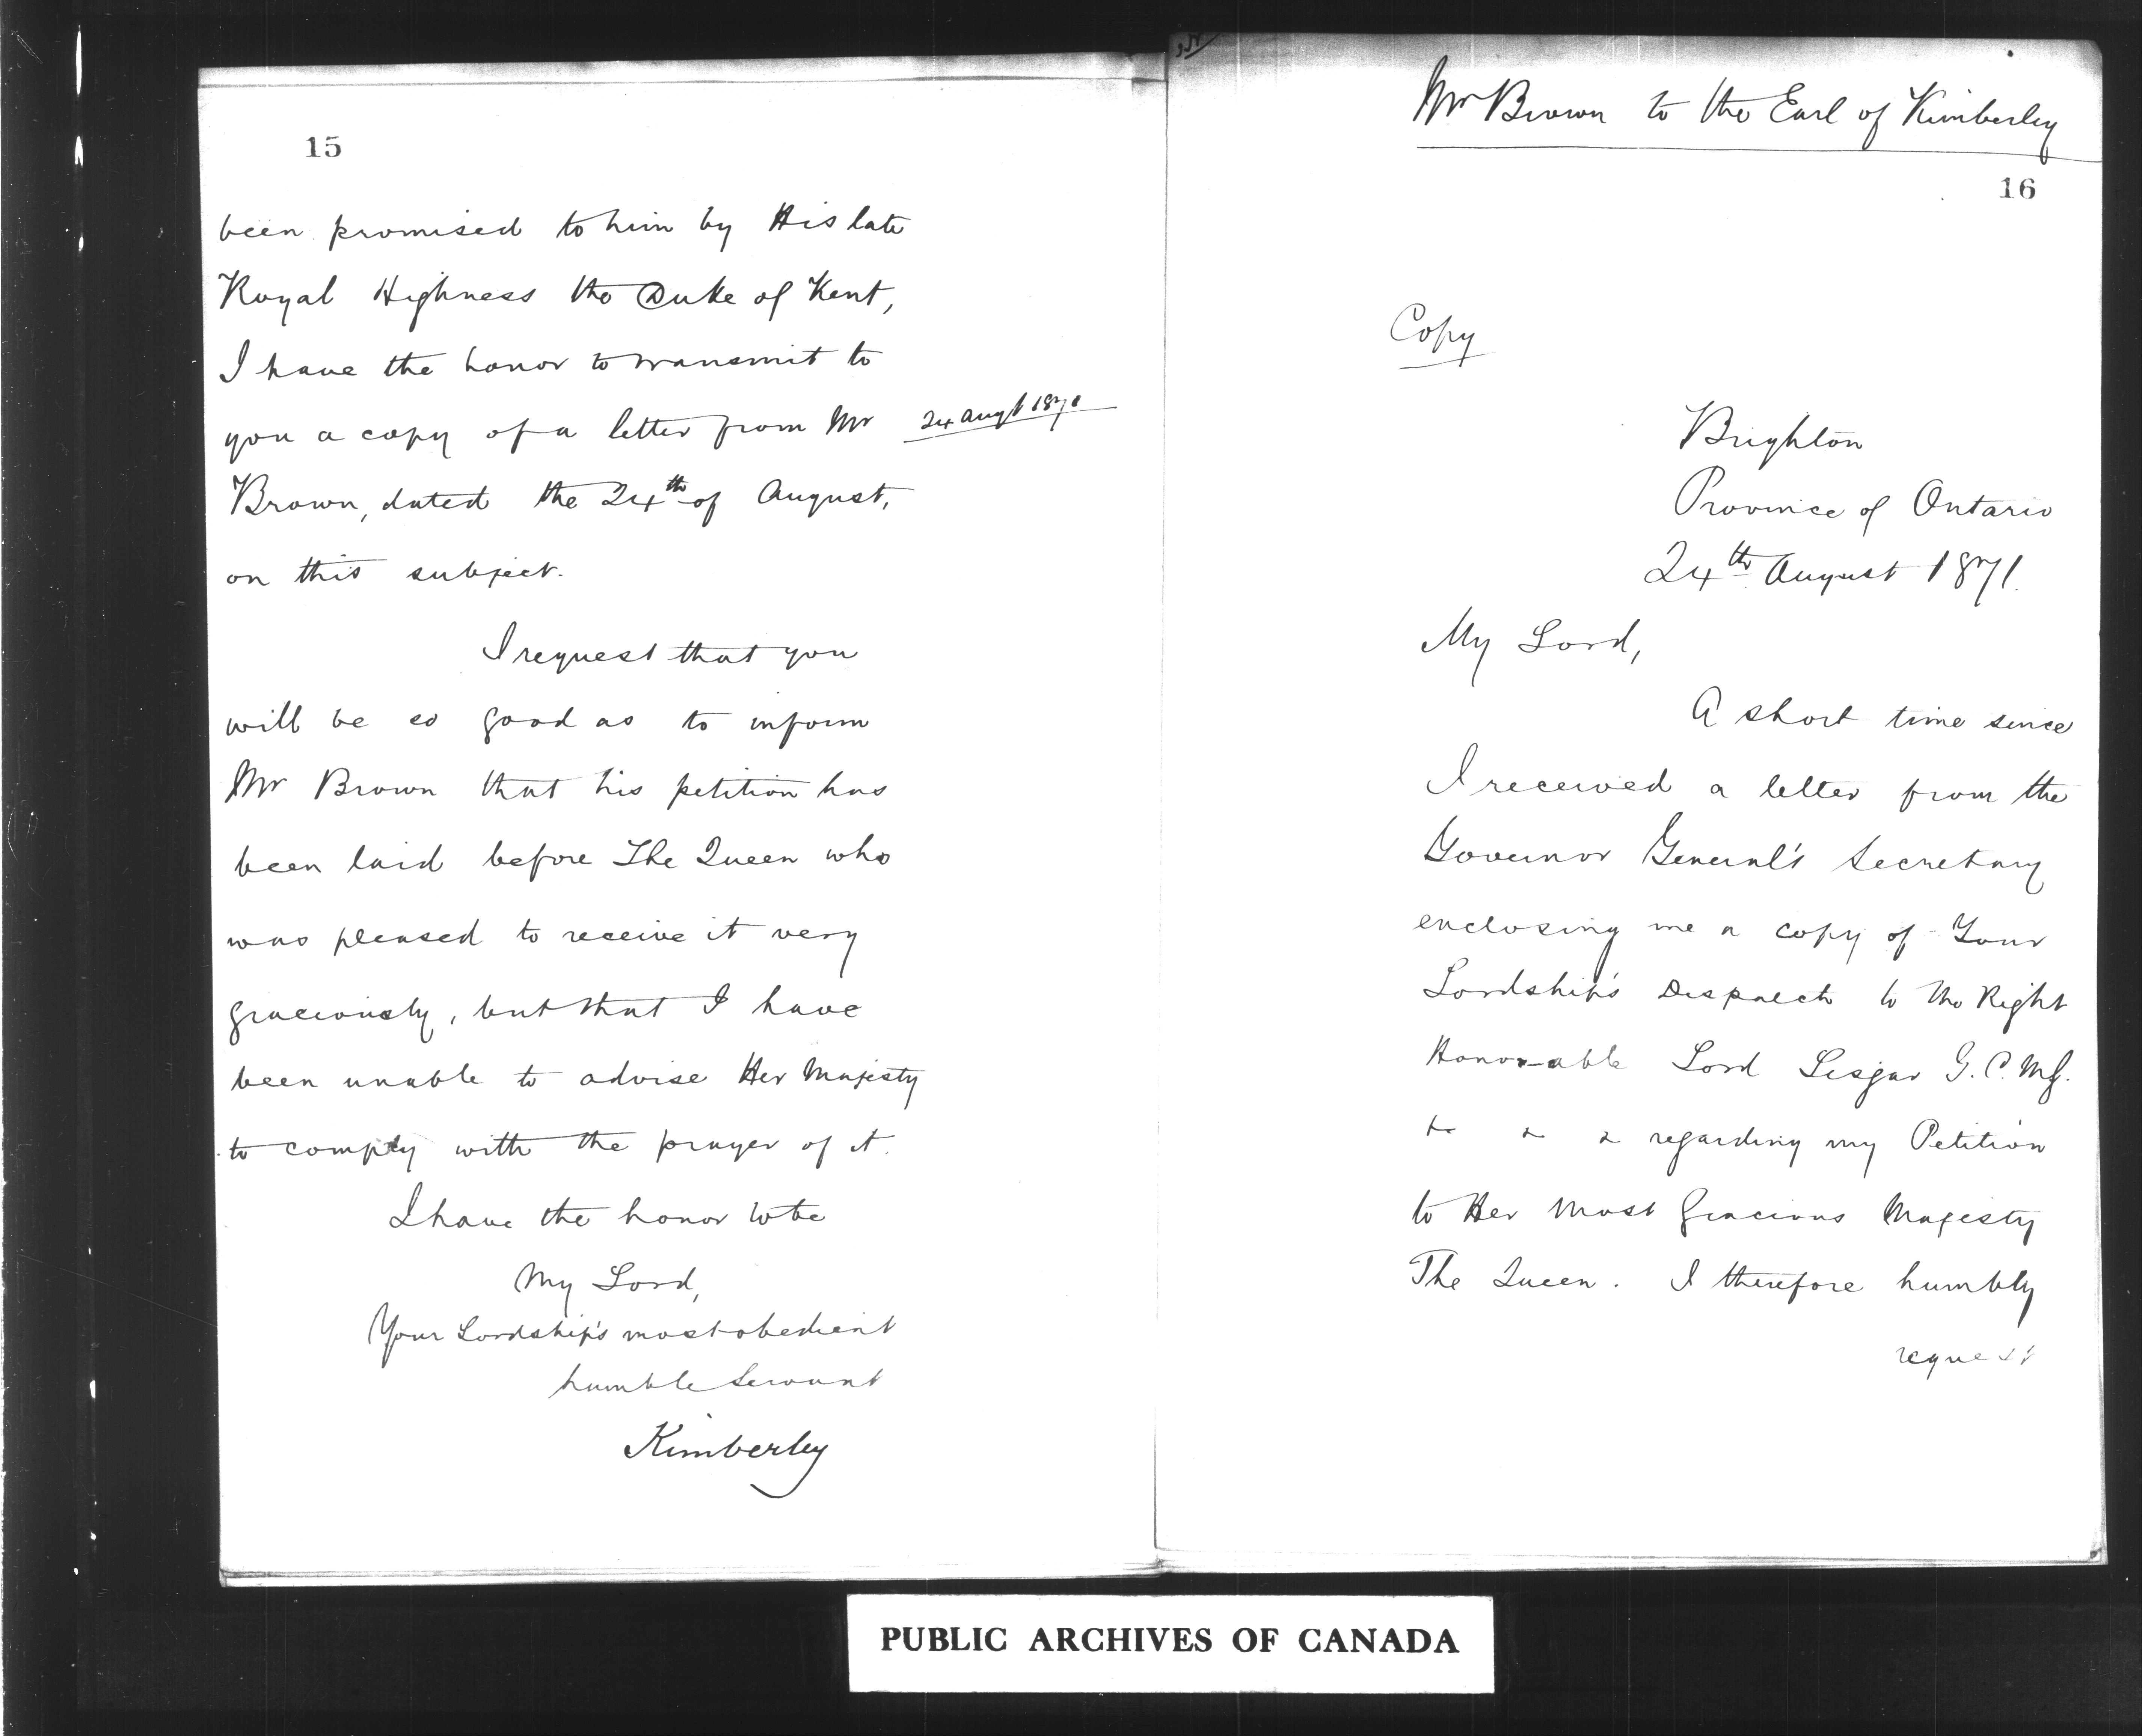 15
been promised to him by His late
Royal Highness the Duke of Kent,
I have the honor to transmit to
you a copy of a letter from Mr
24 Augt 1871
Brown, dated the 24th of August,
on this subject.
I request that you
will be so good as to inform
Mr Brown that his petition has
been laid before The Queen who
was pleased to receive it very
graciously, but that I have
been unable to advise Her Majesty
to comply with the prayer of it.
I have the honor to be
My Lord,
Your Lordship's most obedient
humble Servant
Kimberley
Mr Brown to the Earl of Kimberley
16
Copy
Brighton
Province of Ontario
24th August 1871.
My Lord,
A short time since
I received a letter from the
Governor General's Secretary
enclosing me a copy of Your
Lordship's Despatch to the Right
Honorable Lord Lisgar G.C.M.G.
& & & regarding my Petition
to Her Most Gracious Majesty
The Queen. I therefore humbly
request
PUBLIC ARCHIVES OF CANADA